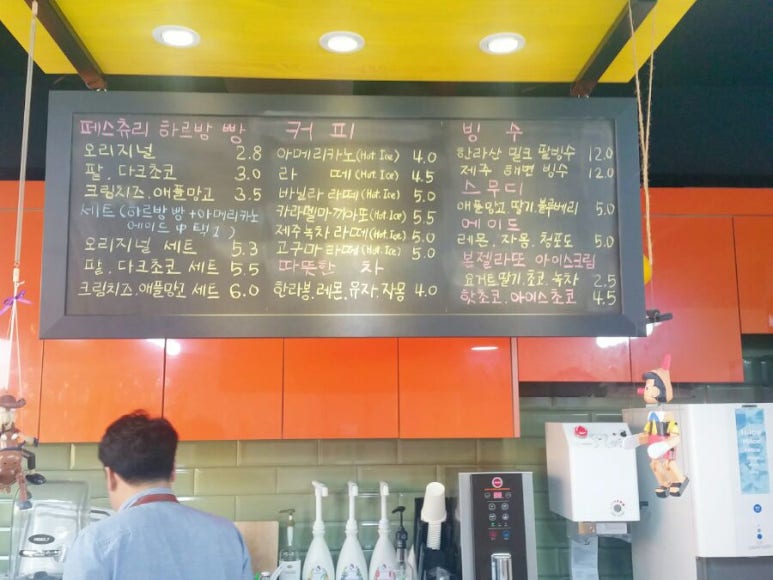 페스츄리 하르방 빵
오리지널 2.8
팥.다크초코 3.0
크림치즈.애플망고 3.5
세트(하르방빵+아메리카노
에이드 中 택1)
오리지널 세트 5.3
팥.다크초코 세트 5.5
크림치즈.애플망고 세트 6.0
커피
아메리카노(Hot Ice) 4.0
라떼(Hot.Ice) 4.5
바닐라 라떼(Hot.Ice) 5.0
카라멜마끼아또(Hot.Ice) 5.5
제주녹차 라떼(Hot.Ice) 5.0
고구마 라떼(Hot.Ice) 5.0
따뜻한 차
한라봉.레몬.유자.자몽 4.0
빙수
한라산 밀크 팥빙수 12.0
제주 해변 빙수 12.0
스무디
애플망고.딸기.블루베리 5.0
에이드
레몬.자몽.청포도 5.0
본젤라또 아이스크림
요거트.딸기.초코.녹차 2.5
핫초코.아이스초코 4.5